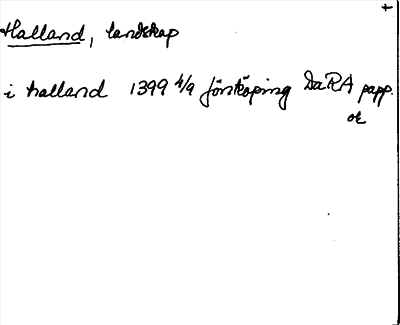 +
Halland, landskap
i halland 1399 4/9 Jönköping DaRA papp.
or